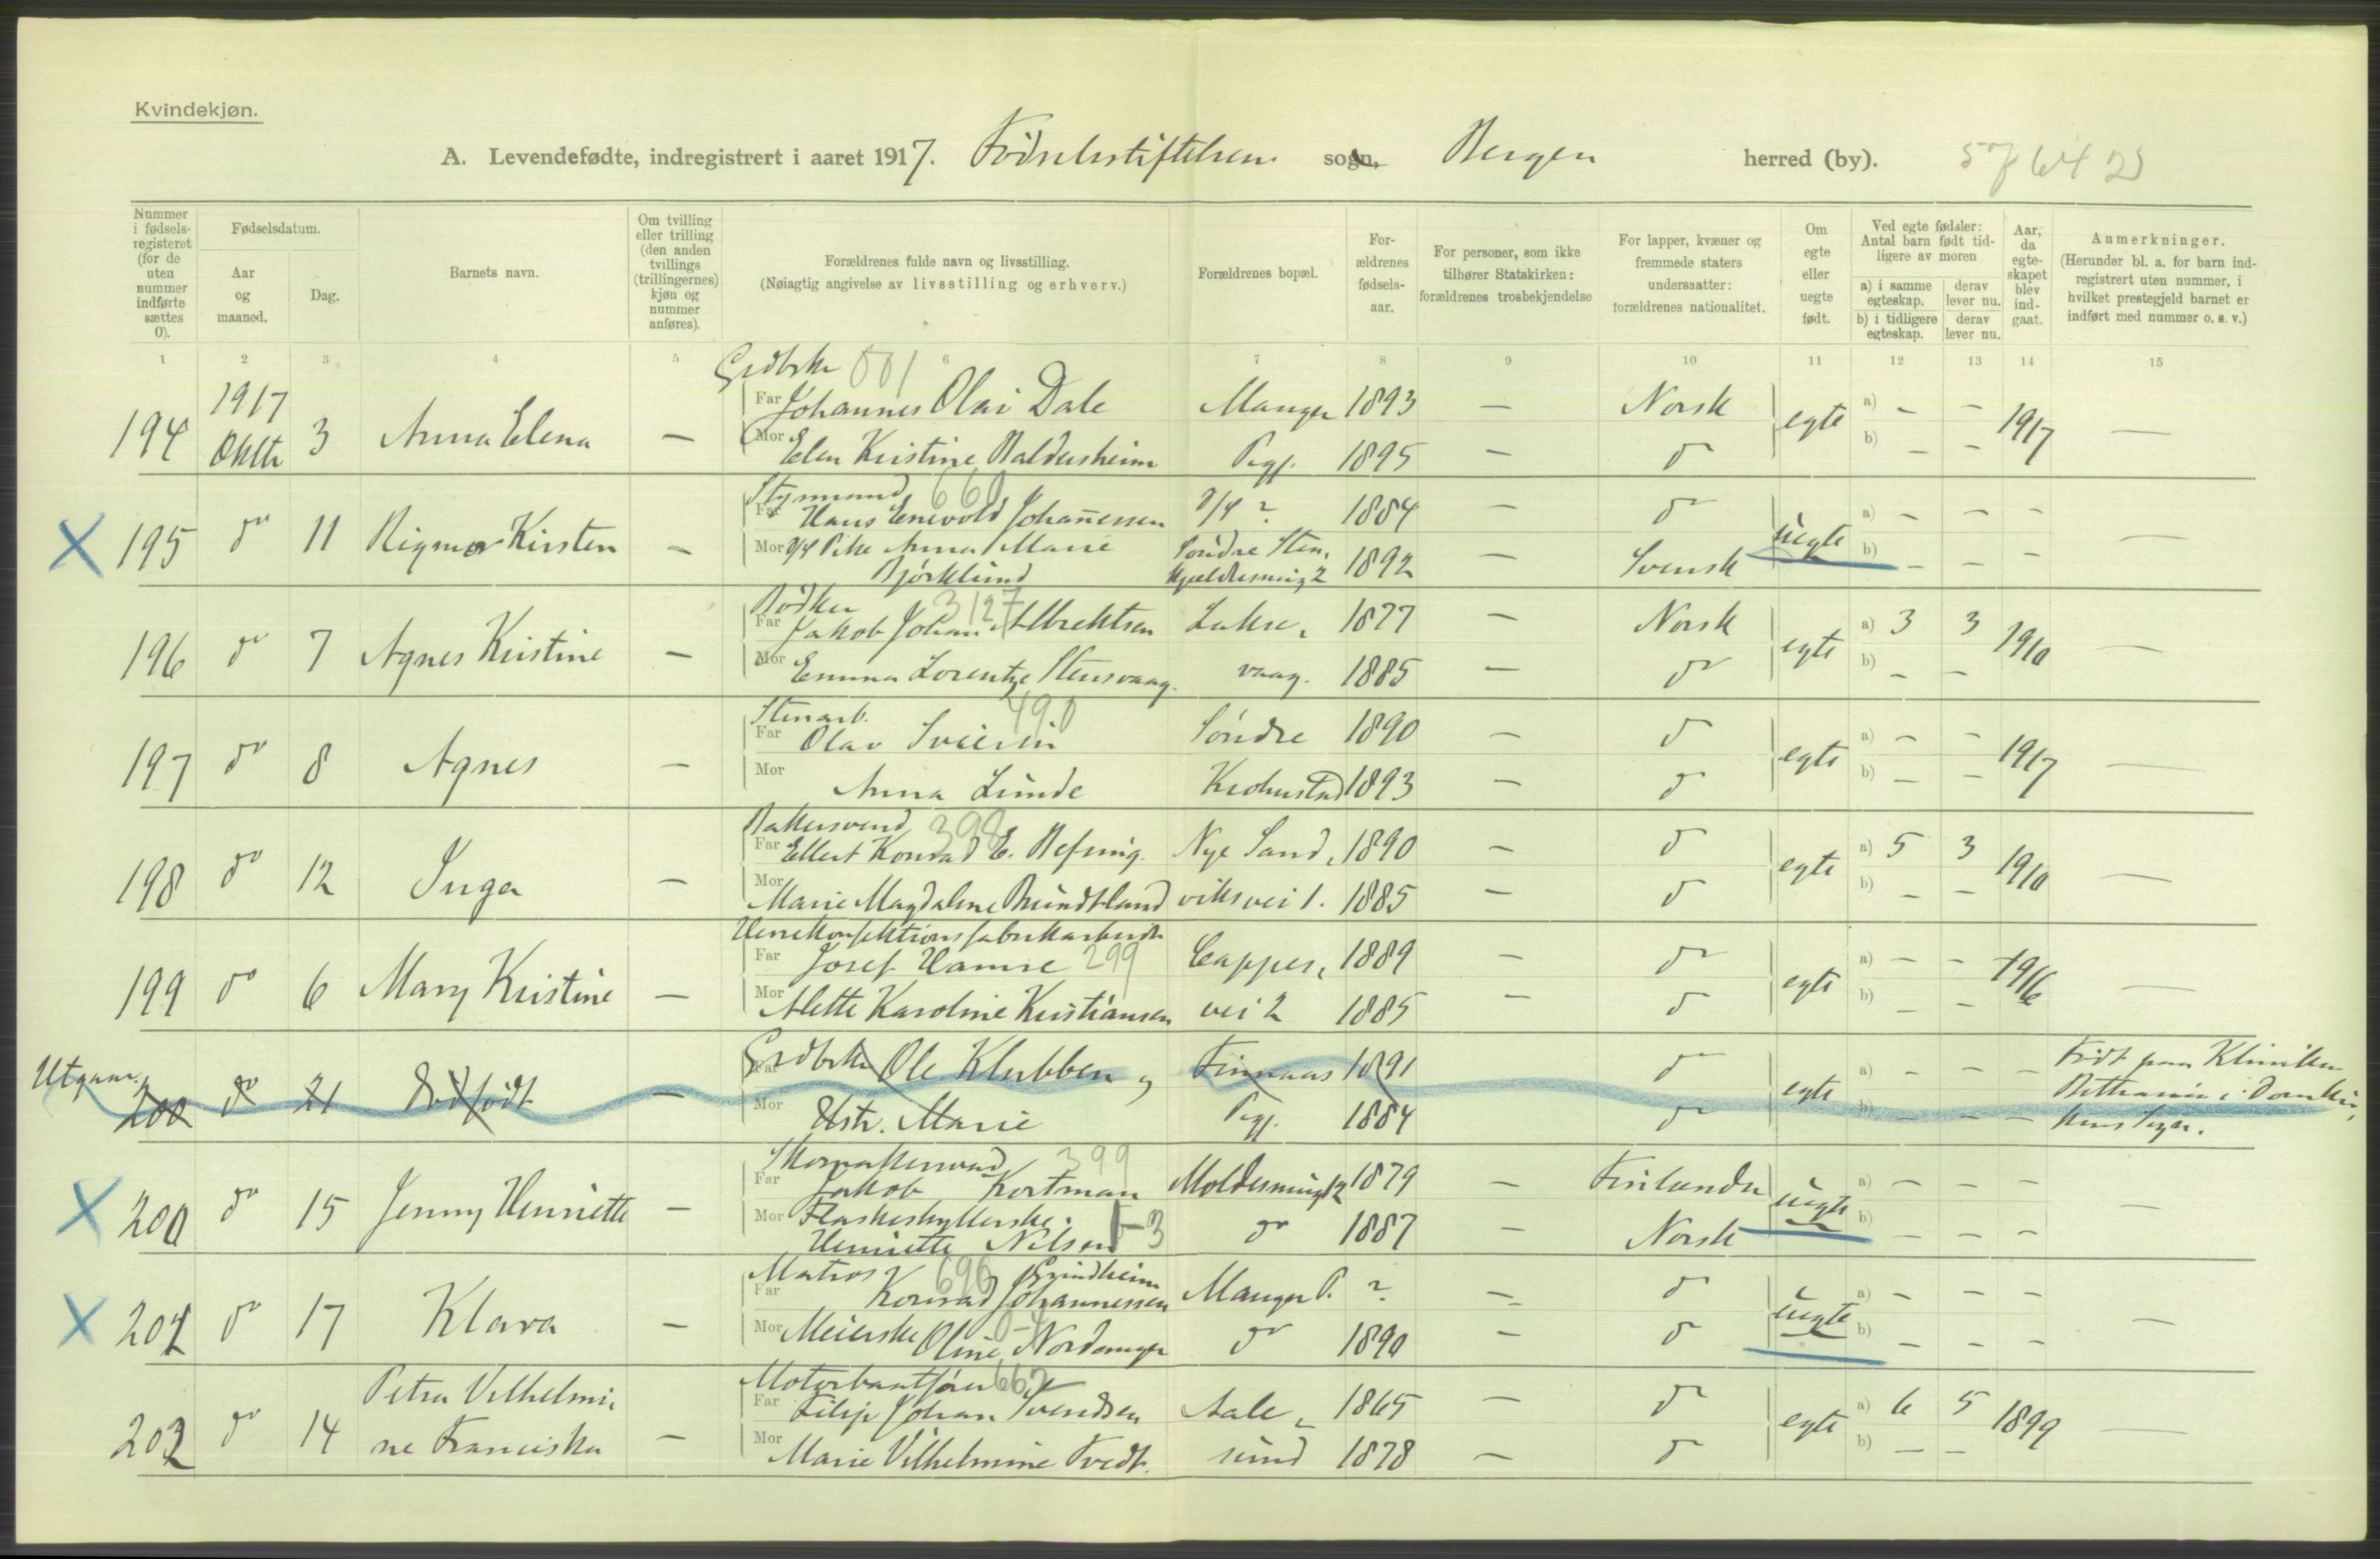 Kvindekjøn.
A. Levendefødte, indregistrert i aaret 1917. Fødselsstiftelsen sogn, Bergen herred (by). 57642
Nummer i fødsels-registeret (for de uten nummer indførte sættes 0).
Fødselsdatum.
Aar og maaned.
Dag.
Barnets navn.
Om tvilling eller trilling (den anden tvillings (trillingernes) kjøn og nummer anføres).
Forældrenes fulde navn og livsstilling.
(Nøiagtig angivelse av livsstilling og erhverv.)
Forældrenes bopæl.
For-ældrenes fødsels-aar.
For personer, som ikke tilhører Statskirken: forældrenes trosbekjendelse
For lapper, kvæner og fremmede staters undersaatter: forældrenes nationalitet.
Om egte eller uegte født.
Ved egte fødsler: Antal barn født tid-ligere av moren
a) i samme egteskap. derav lever nu.
b) i tidligere egteskap. derav lever nu.
Aar, da egte-skapet blev ind-gaat.
Anmerkninger.
(Herunder bl. a. for barn ind-registrert uten nummer, i hvilket prestegjeld barnet er indført med nummer o. s. v.)
1 2 3 4 5 6 7 8 9 10 11 12 13 14 15
Grdbrk
194 1917 Oktbr 3 Anna Elena — Far Johannes Olai Dale Manger 1893 — Norsk egte a) — — 1917 —
Mor Elen Kristine Baldersheim Pgj. 1895 — do b) — —
Styrmand 660
X 195 do 11 Rigmor Kirsten — Far Hans Enevold Johannessen o/4 ? 1884 do uegte a) — — — —
Mor o/4 Pike Anna Marie Søndre Sten- 1892 — Svensk b) — — —
Bjørklund kjeldersmug 2
Bødker 3127
196 do 7 Agnes Kristine — Far Jakob Johan Albrektsen Lakse- 1877 — Norsk egte a) 3 3 1910 —
Mor Emma Lorentze Stensvaag vaag. 1885 — do b) — —
Stenarb. 490
197 do 8 Agnes — Far Olav Sveiven Søndre 1890 — do egte a) — — 1917 —
Mor Anna Lunde Krohnstad 1893 — do b) — —
Bakersvend 398
198 do 12 Inga — Far Ellert Konrad E. Refsnig. Nye Sand- 1890 — do egte a) 5 3 1910 —
Mor Marie Magdalene Brundtland viksvei 1. 1885 — do b) — —
Herrekonfektionsfabrikarbeider
199 do 6 Mary Kristine — Far Josef Hamre 299 Cappes- 1889 — do egte a) — — 1916 —
Mor Alette Karoline Kristiansen vei 2 1885 — do b) — —
Utgaar.
200 do 21 Dødfødt — Far Grdbrk Ole Klubben og Finnaas 1891 do egte a) — — — Født paa Kliniken
Mor Hstr. Marie Pgj. 1884 do b) — — — Bethanien i Domkir-
kens sogn.
Skomakersvend 399
X 200 do 15 Jenny Henriette — Far Jakob Kortman Moldersmug 12 1879 — Finlænder uegte a) — — — —
Mor Flaskeskyllerske. do 1887 — Norsk b) — — —
Henriette Nilsen 1-3
Matros 696 Grindheim
X 201 do 17 Klara — Far Konrad Johannessen Manger P. ? — do uegte a) — — — —
Mor Meierske Oline Nordanger do 1890 — do b) — — —
0-4
Motorbaatfører 662
202 do 14 Petra Vilhelmi- — Far Filip Johan Svendsen Aale- 1865 — do egte a) 6 5 1899 —
ne Franciska Mor Marie Vilhelmine Tvedt. sund 1878 — do b) — —